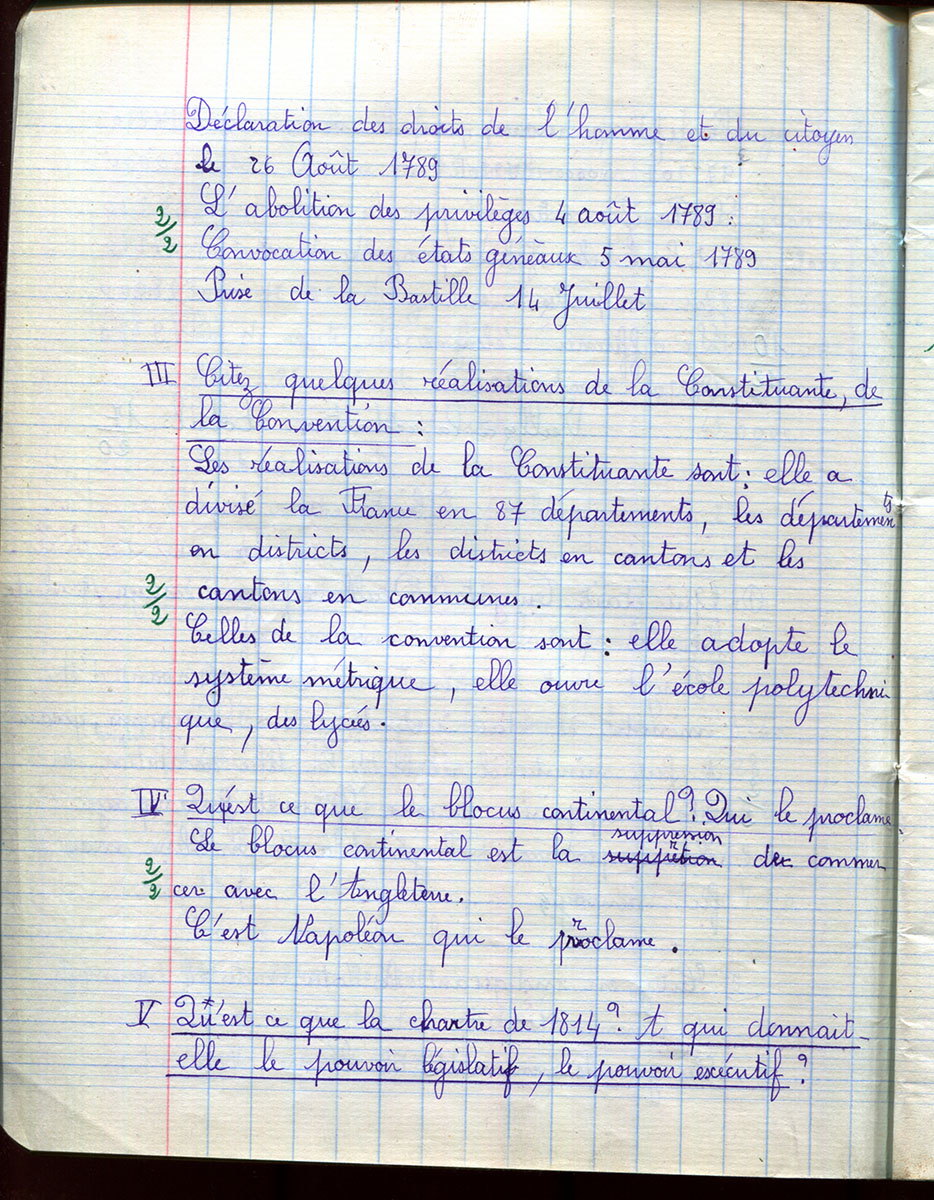 Déclaration des droits de l'homme et du citoyen
le 26 Août 1789
L'abolition des privilèges 4 août 1789 :
2/2
Convocation des états généaux 5 mai 1789
Prise de la Bastille 14 Juillet
III Citez quelques réalisations de la Constituante, de
la Convention :
Les réalisations de la Constituante sont : elle a
divisé la France en 87 départements, les départements
en districts, les districts en cantons et les
2/2 cantons en communes.
Celles de la convention sont : elle adopte le
système métrique, elle ouvre l'école polytechni
que, des lycées.
IV Qu'est ce que le blocus continental ? Qui le proclame
Le blocus continental est la suppression du commer
2/2 cer avec l'Angleterre.
C'est Napoléon qui le proclame.
V Qu'est ce que la chartre de 1814 ? A qui donnait-
elle le pouvoir législatif, le pouvoir exécutif ?